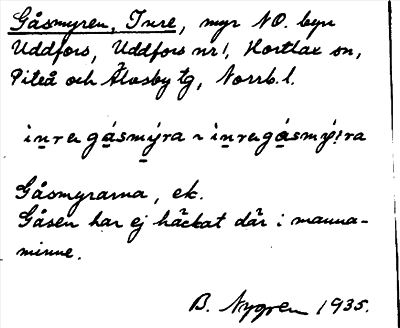 Gåsmyren, Inre, myr NO. byn
Uddfors, Uddfors nr 1, Hortlax sn,
Piteå och Älvsby tg, Norrb. l.
inregåsmy̌ra ~ inregåsmy̌ra
Gåsmyrarna, ek.
Gåsen har ej häckat där i manna-
minne.
B. Nygren 1935.